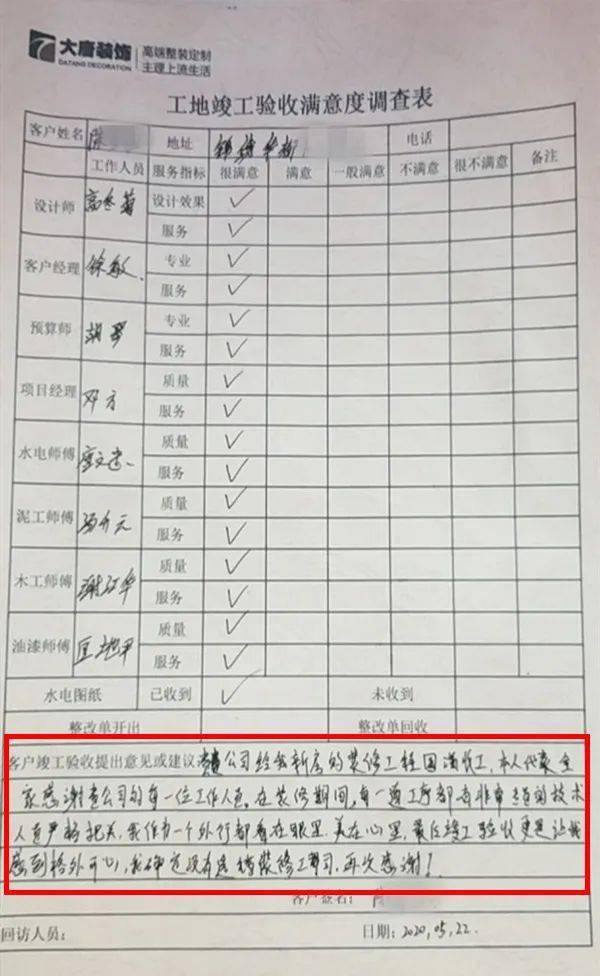 大唐装饰 高端整装定制
DATANG DECORATION 主理上流生活
工地竣工验收满意度调查表
客户姓名 陈 地址 锦绣华 电话
工作人员 服务指标 很满意 满意 一般满意 不满意 很不满意 备注
设计师 高冬菊 设计效果 ✓
服务 ✓
客户经理 徐敏 专业 ✓
服务 ✓
预算师 胡 专业 ✓
服务 ✓
项目经理 邓方 质量 ✓
服务 ✓
水电师傅 廖文 质量 ✓
服务 ✓
泥工师傅 元 质量 ✓
服务 ✓
木工师傅 谢 华 质量 ✓
服务 ✓
油漆师傅 匡 质量 ✓
服务 ✓
水电图纸 已收到 ✓ 未收到
整改单开出 整改单回收
客户竣工验收提出意见或建议 贵公司经我新房的装修工程圆满收工,本人代表全
家感谢贵公司的每一位工作人员。在装修期间,每一道工序都有非常 的技术
人员严格把关,我作为一个外行都看在眼里,美在心里,最后竣工验收更是让我
感到格外开心,我确定没有选错装修公司,再次感谢!
客户签名: 陈
回访人员: 日期: 2020,05,22.